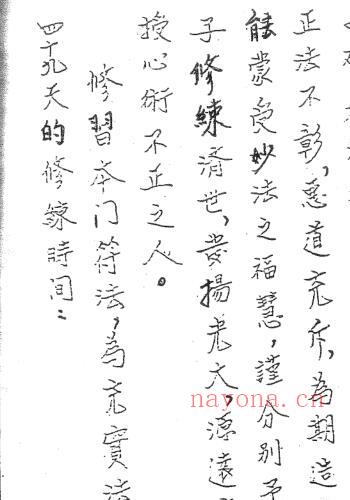 正法不彰，惡道充斥，為期造
能蒙受妙法之福慧，謹分別予
子修練濟世，發揚光大，源遠
授心術不正之人。
修習本门符法，為充實法
四十九天的修鍊時间：
nayona.cn